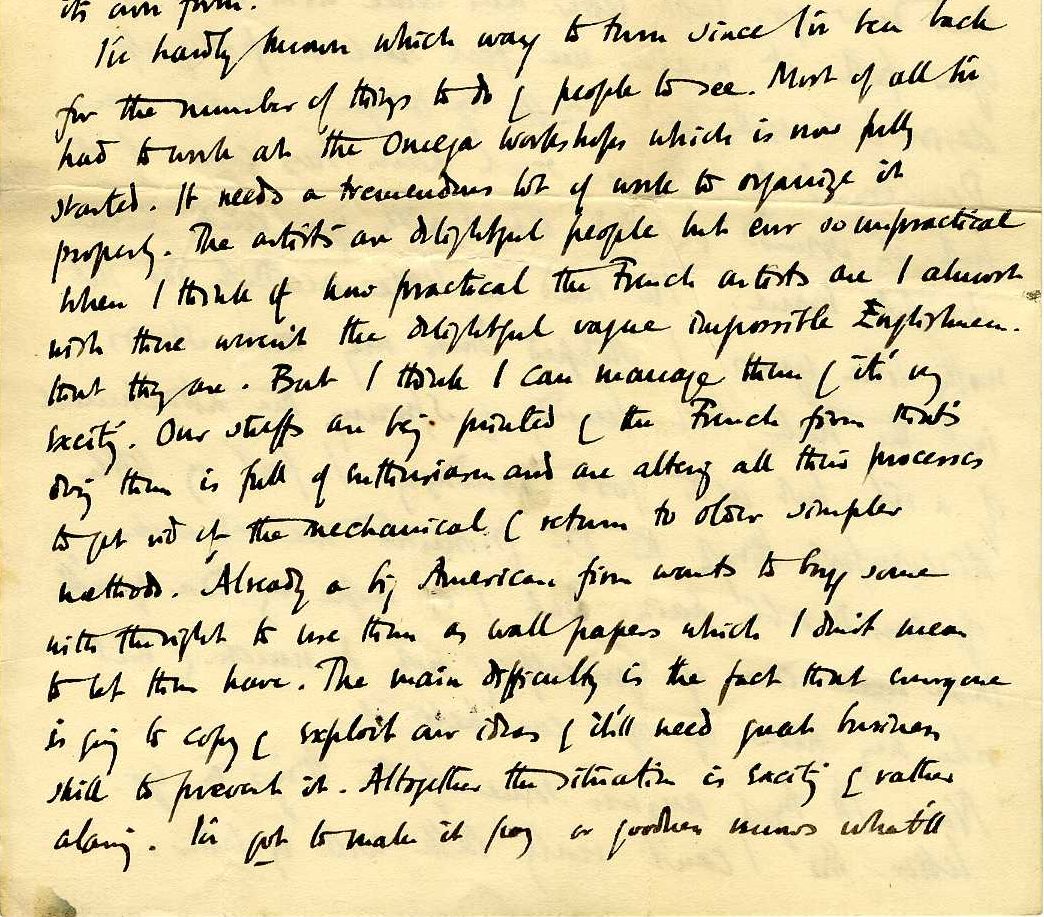 its own form.
I've hardly known which way to turn since I've been back
for the number of things to do & people to see. Most of all I've
had to work at the Omega workshops which is now fully
started. It needs a tremendous lot of work to organize it
properly. The artists are delightful people but ever so unpractical
When I think of how practical the French artists are I almost
wish these weren't the delightful vague impossible Englishmen.
that they are. But I think I can manage them & it's very
exciting. Our stuffs are being printed & the French firm that's
doing them is full of enthusiasm and are altering all their processes
to get rid of the mechanical & return to older simpler
methods. Already a big American firm wants to buy some
with the right to use them as wall papers which I don't mean
to let them have. The main difficulty is the fact that everyone
is going to copy & exploit our ideas & it'll need great business
skill to prevent it. Altogether the situation is exciting & rather
alarming. I've got to make it pay or goodness knows what'll